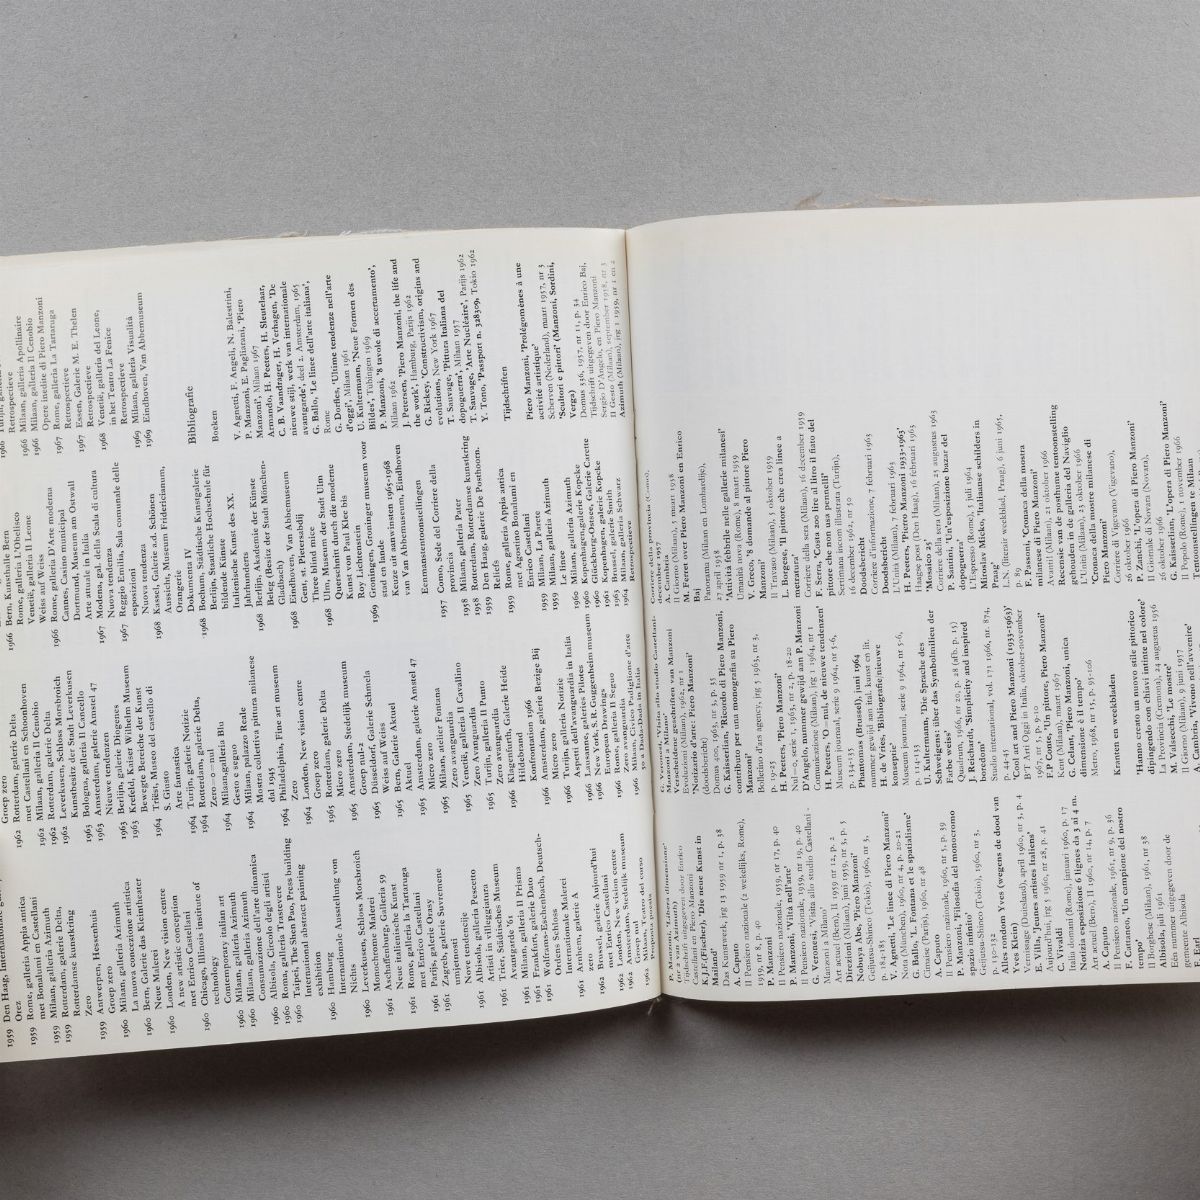 1959 Den Haag, Internationale
Orez
1959 Rome, galleria Appia antica
met Bonalumi en Castellani
1959 Milaan, galleria Azimuth
1959 Rotterdam, galerie Delta,
Rotterdamse kunstkring
Zero
1959 Antwerp, Hessenhuis
Groep zero
1960 Milaan, galleria Azimuth
La nuova concezione artistica
1960 Bern, Galerie das Kleintheater
Neue Malerei
1960 Londen, New vision centre
A new artistic conception
met Enrico Castellani
1960 Chicago, Illinois institute of
technology
Contemporary italian art
1960 Milaan, galleria Azimuth
1960 Milaan, galleria Azimuth
Consumazione dell'arte dinamica
1960 Albisola, Circolo degli artisti
1960 Roma, galleria Trastevere
1960 Taipei, Hsin Shen Pao, Press building
International abstract painting
exhibition
1960 Hamburg
Internationale Ausstellung von
Nichts
1960 Leverkusen, Schloss Morsbroich
Monochrome Malerei
1961 Aschaffenburg, Galleria 59
Neue italienische Kunst
1961 Rome, galleria La Tartaruga
met Enrico Castellani
1961 Parijs, galerie Orasy
1961 Zagreb, Galerije Suvremene
umjetnosti
Nove tendencije
1961 Albisola, galleria Pescetto
Arte in villeggiatura
1961 Trier, Städtisches Museum
Avantgarde '61
1961 Milaan, galleria Il Prisma
1961 Frankfurt, galerie Dato
1961 Wolframs-Eschenbach, Deutsch-
Ordens Schloss
Internationale Malerei
1961 Arnhem, galerie A
Nul
1962 Brussel, galerie Aujourd'hui
met Enrico Castellani
1962 Londen, New vision centre
1962 Amsterdam, Stedelijk museum
Groep nul
Groep zero
1962 Rotterdam, galerie Delta
met Castellani en Schoonhoven
1962 Milaan, galleria Il Cenobio
1962 Rotterdam, galerie Delta
1962 Leverkusen, Schloss Morsbroich
Kunstbesitz der Stadt Leverkusen
1963 Bologna, galleria Il Cancello
1963 Amsterdam, galerie Amstel 47
Nieuwe tendenzen
1963 Berlijn, galerie Diogenes
1963 Krefeld, Kaiser Wilhelm Museum
Bewegte Bereiche der Kunst
1964 Triest, museo del castello di
S. Giusto
Arte fantastica
1964 Turijn, galleria Notizie
1964 Rotterdam, galerie Delta,
Zero-o-nul
1964 Milaan, galleria Blu
Gesto e segno
1964 Milaan, palazzo Reale
Mostra collettiva pittura milanese
dal 1945
1964 Philadelphia, Fine art museum
Zero
1964 Londen, New vision centre
Groep zero
1965 Rotterdam, galerie Delta
Micro zero
1965 Amsterdam, Stedelijk museum
Groep nul-2
1965 Düsseldorf, Galerie Schmela
Weiss auf Weiss
1965 Bern, Galerie Aktuel
Aktuel
1965 Amsterdam, galerie Amstel 47
Micro zero
1965 Milaan, atelier Fontana
Zero avanguardia
1965 Venetië, galleria Il Cavallino
Zero avanguardia
1965 Turijn, galleria Il Punto
Zero avanguardia
1966 Klagenfurth, Galerie Heide
Hildebrand
Internationale 1966
1966 Amsterdam, galerie Bezige Bij
Micro zero
1966 Turijn, galleria Notizie
Aspetti dell'avanguardia in Italia
1966 Lausanne, galerie Potterat
1966 New York, S. R. Guggenheim museum
European drawings
1966 Roma, galleria Il Segno
Zero avanguardia
1966 Venetië, Padiglione d'arte
1966 Bern, Kunsthalle Bern
Rome, galleria L'Obelisco
Venetië, galleria Il Leone
Weiss auf Weiss
1966 Rome, galleria D'Arte moderna
Cannes, Casino municipal
Dortmund, Museum am Ostwall
Arte attuale in Italia
1967 Modena, galleria della Scala di cultura
Nuova tendenza
1967 Reggio Emilia, Sala comunale delle
esposizioni
Nuova tendenza
1968 Kassel, Galerie a.d. Schönen
Aussicht, Museum Fridericianum,
Orangerie
Dokumenta IV
1968 Bochum, Städtische Kunstgalerie
Berlijn, Staatliche Hochschule für
bildende Künste
Italienische Kunst des XX.
Jahrhunderts
1968 Berlijn, Akademie der Künste
Beleg (Besitz der Stadt Mönchen-
Gladbach)
1968 Eindhoven, Van Abbemuseum
Gent, st. Pietersabdij
Three blind mice
1968 Ulm, Museum der Stadt Ulm
Querschnitt durch die moderne
Kunst von Paul Klee bis
Roy Lichtenstein
1969 Groningen, Groninger museum voor
stad en lande
Keuze uit aanwinsten 1965-1968
van Van Abbemuseum, Eindhoven
Eenmanstentoonstellingen
1957 Como, Sede del Corriere della
provincia
1958 Milaan, galleria Pater
1958 Rotterdam, Rotterdamse kunstkring
1959 Den Haag, galerie De Posthoorn
Reliefs
1959 Rome, galleria Appia antica
met Agostino Bonalumi en
Enrico Castellani
1959 Milaan, La Parete
1959 Milaan, galleria Azimuth
Le linee
1960 Milaan, galleria Azimuth
1960 Kopenhagen, galerie Køpcke
1960 Glücksburg-Ostsee, Galerie Carette
1961 Kopenhagen, galerie Kopcke
1963 Brussel, galerie Smith
1964 Milaan, galleria Schwarz
Retrospectieve
Retrospectieve
1966 Milaan, galleria Apollinaire
1966 Milaan, galleria Il Cenobio
Opere inedite di Piero Manzoni
1967 Rome, galleria La Tartaruga
Retrospectieve
1967 Essen, Galerie M. E. Thelen
Retrospectieve
1968 Venetië, galleria del Leone,
in het Teatro La Fenice
Retrospectieve
1969 Milaan, galleria Visualità
1969 Eindhoven, Van Abbemuseum
Bibliografie
Boeken
V. Agnetti, F. Angeli, N. Balestrini,
P. Manzoni, E. Pagliarani, 'Piero
Manzoni', Milaan 1967
Armando, H. Peeters, H. Sleutelaar,
C. B. Vaandrager, H. Verhagen, 'De
nieuwe stijl, werk van internationale
avantgarde', deel 2. Amsterdam, 1965
G. Ballo, 'Le linee dell'arte italiana',
Rome
G. Dorfles, 'Ultime tendenze nell'arte
d'oggi', Milaan 1961
U. Kultermann, 'Neue Formen des
Bildes', Tübingen 1969
P. Manzoni, '8 tavole di accertamento',
Milaan 1962
J. Petersen, 'Piero Manzoni, the life and
the work', Hamburg, Parijs 1962
G. Rickey, 'Constructivism, origins and
evolution', New York 1967
T. Sauvage, 'Pittura Italiana del
dopoguerra', Milaan 1957
T. Sauvage, 'Arte Nucléaire', Parijs 1962
Y. Tono, 'Passport n. 328309, Tokio 1962
Tijdschriften
Piero Manzoni, 'Prolégomènes à une
activité artistique'
Scherven (Nederland), maart 1957, nr 3
'Scultori e pittori' (Manzoni, Sordini,
Verga)
Domus 336, 1957, nr 11, p. 34
Tijdschrift uitgegeven door Enrico Baj,
Sergio D'Angelo, en Piero Manzoni
Il Gesto (Milaan), september 1958, nr 3
Azimuth (Milaan), jrg 1 1959, nr 1 en 2
P. Manzoni, 'Libera dimensione'
(nr 2 van Azimuth uitgegeven door Enrico
Castellani en Piero Manzoni)
K.J.F(Fischer), 'Die neue Kunst in
Mailand'
Das Kunstwerk, jrg 13 1959 nr 1, p. 38
A. Caputo
Il Pensiero nazionale (2 wekelijks, Rome),
1959, nr 8, p. 40
P. Manzoni
Il Pensiero nazionale, 1959, nr 17, p. 40
P. Manzoni, 'Viltà nell'arte'
Il Pensiero nazionale, 1959, nr 19, p. 40
G. Veronesi, 'Visita allo studio Castellani
Manzoni a Milano'
Art Actuel (Bern), II 1959 nr 12, p. 2
Direzioni (Milaan), juni 1959, nr 3, p. 5
Nobuya Abe, 'Piero Manzoni'
Geijutsu Shinco (Tokio), 1960, nr 3,
p. 178-185
V. Agnetti, 'Le linee di Piero Manzoni'
Nota (München), 1960, nr 4, p. 20-21
G. Ballo, 'L. Fontana et le spatialisme'
Cimaise (Parijs), 1960, nr 48
A. Caputo
Il Pensiero nazionale, 1960, nr 5, p. 39
P. Manzoni, 'Filosofia del monocromo
spazio infinito'
Geijutsu Shinco (Tokio), 1960, nr 3,
p. 132-133
Alles rondom Yves (wegens de dood van
Yves Klein)
Vernissage (Duitsland), april 1960, nr 3, p. 4
E. Villa, 'Jeunes artistes italiens'
Aujourd'hui, jrg 5 1960, nr 28, p. 41
C. Vivaldi
Italia domani (Rome), januari 1960, p. 17
Notizia esposizione 6 lignes da 3 al 4 m.
Art actuel (Bern), II 1960, nr 14, p. 7
A. Caputo
Il Pensiero nazionale, 1961, nr 9, p. 36
F. Cattaneo, 'Un campione del nostro
tempo'
Il Borghese (Milaan), 1961, nr 38
Albisola, juli 1961
Eén nummer uitgegeven door de
gemeente Albisola
F. Earl
G. Veronesi, 'Visite allo studio Castellani-
Manzoni a Milano'
Verschenen in 'Piero Manzoni'
Evoluzioni (Milaan), 1962, nr 1
'Notizario d'arte: Piero Manzoni'
(doodsbericht)
Domus, nr 400, 1963, nr 3, p. 35
C. Kaisserlian, 'Ricordo di Piero Manzoni,
contributo per una monografia su Piero
Manzoni'
Bulletino d'ars agency, jrg 5 1963, nr 3,
p. 10
H. Peeters, 'Piero Manzoni'
Nul=0, serie 1, 1963, nr 2, p. 18-20
V. Agnetti, nummer gewijd aan P. Manzoni
Comunicazione (Milaan), 1964, nr 1
H. Peeters, 'O=nul, de nieuwe tendenzen'
Museum journaal, serie 9 1964, nr 5-6,
p. 134-135
Phantomas (Brussel), juni 1964
nummer gewijd aan ital. kunst en lit.
H. de Vries, 'Bibliografie/nieuwe
tendenzie'
Museum journaal, serie 9 1964, nr 5-6,
p. 114-133
U. Kultermann, 'Die Sprache des
Schweigens: über das Symbolmilieu der
Farbe weiss'
Quadrum, 1966, nr 20, p. 28 (afb. p. 15)
J. Reichardt, 'Simplicity and inspired
boredom'
Studio international, vol. 171 1966, nr 874,
p. 44-45
'Cool art and Piero Manzoni (1933-1963)'
B'T Arti Oggi in Italia, oktober-november
1967, nr 7, p. 9-10
'F.P Culture, Peinture, Piero Manzoni'
Kunst (Mainz), maart 1967
G. Celant, 'Piero Manzoni, unica
dimensione è il tempo'
Metro, 1968, nr 15, p. 95-106
Kranten en weekbladen
'Hanno creato un nuovo stile pittorico
dipingendo chiavi intinte nel colore'
La Provincia (Cremona), 24 augustus 1956
M. Valsecchi, 'Le mostre'
Il Giorno (Milaan), 9 juni 1957
A. Cambria, 'Vivono nell'avvenire'
Corriere della provincia (Como),
december 1957
A. Cambria
Il Giorno (Milaan), 7 maart 1958
M. Ferret over Piero Manzoni en Enrico
Baj
Panorama (Milaan en Lombardije),
27 april 1958
'Attività febbrile nelle gallerie milanesi'
Umanità nuova (Rome), 8 maart 1959
V. Greco, '8 domande al pittore Piero
Manzoni'
Il Travaso (Milaan), 5 oktober 1959
L. Bergese, 'Il pittore che crea linee a
metratura'
Corriere della sera (Milaan), 16 december 1959
F. Serra, 'Costa 200 lire al litro il fiato del
pittore che non usa pennelli'
Settimana incom illustrata (Turijn),
16 december 1962, nr 50
Doodsbericht
Corriere d'informazione, 7 februari 1963
Doodsbericht
L'Unità (Milaan), 7 februari 1963
H. Peeters, 'Pietro Manzoni 1933-1963'
Haagse post (Den Haag), 16 februari 1963
'Mosaico 25'
Corriere della sera (Milaan), 25 augustus 1963
P. Santi, 'Un'esposizione bazar del
dopoguerra'
L'Espresso (Rome), 5 juli 1964
Miroslav Micko, 'Italiaanse schilders in
Praag'
L.N. (literair weekblad, Praag), 6 juni 1965,
p. 89
F. Passoni, 'Cronaca della mostra
milanese di Piero Manzoni'
Avanti (Milaan), 21 oktober 1966
Recensie van de posthume tentoonstelling
gehouden in de galleria del Naviglio
L'Unità (Milaan), 25 oktober 1966
'Cronaca della mostre milanese di
Piero Manzoni'
Corriere di Vigevano (Vigevano),
26 oktober 1966
P. Zanchi, 'L'opera di Piero Manzoni'
Il Giornale di Novara (Novara),
26 oktober 1966
G. Kaisserlian, 'L'opera di Piero Manzoni'
Il Popolo (Rome), 1 november 1966
Tentoonstellingen te Milaan